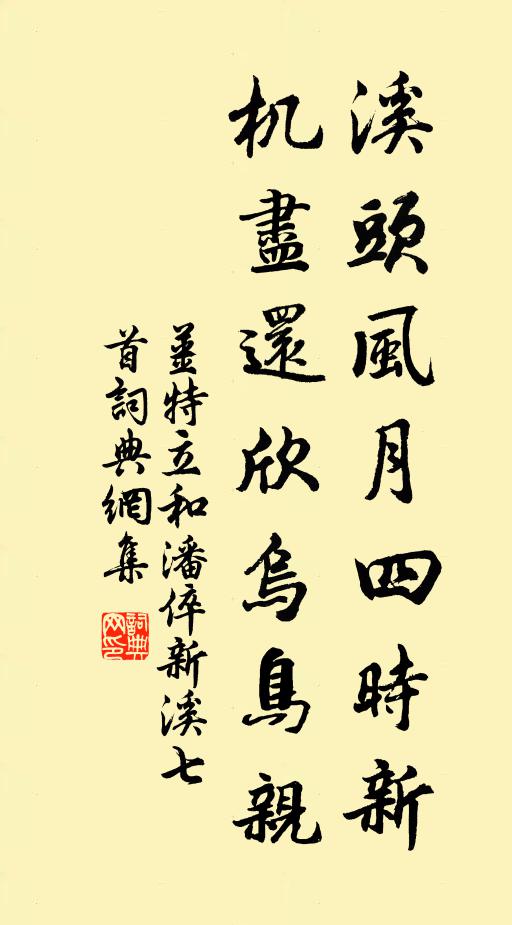 溪頭風月四時新
机盡還欣烏鳥親
姜特立和潘倅新溪七
首詞典網集
詞典网印